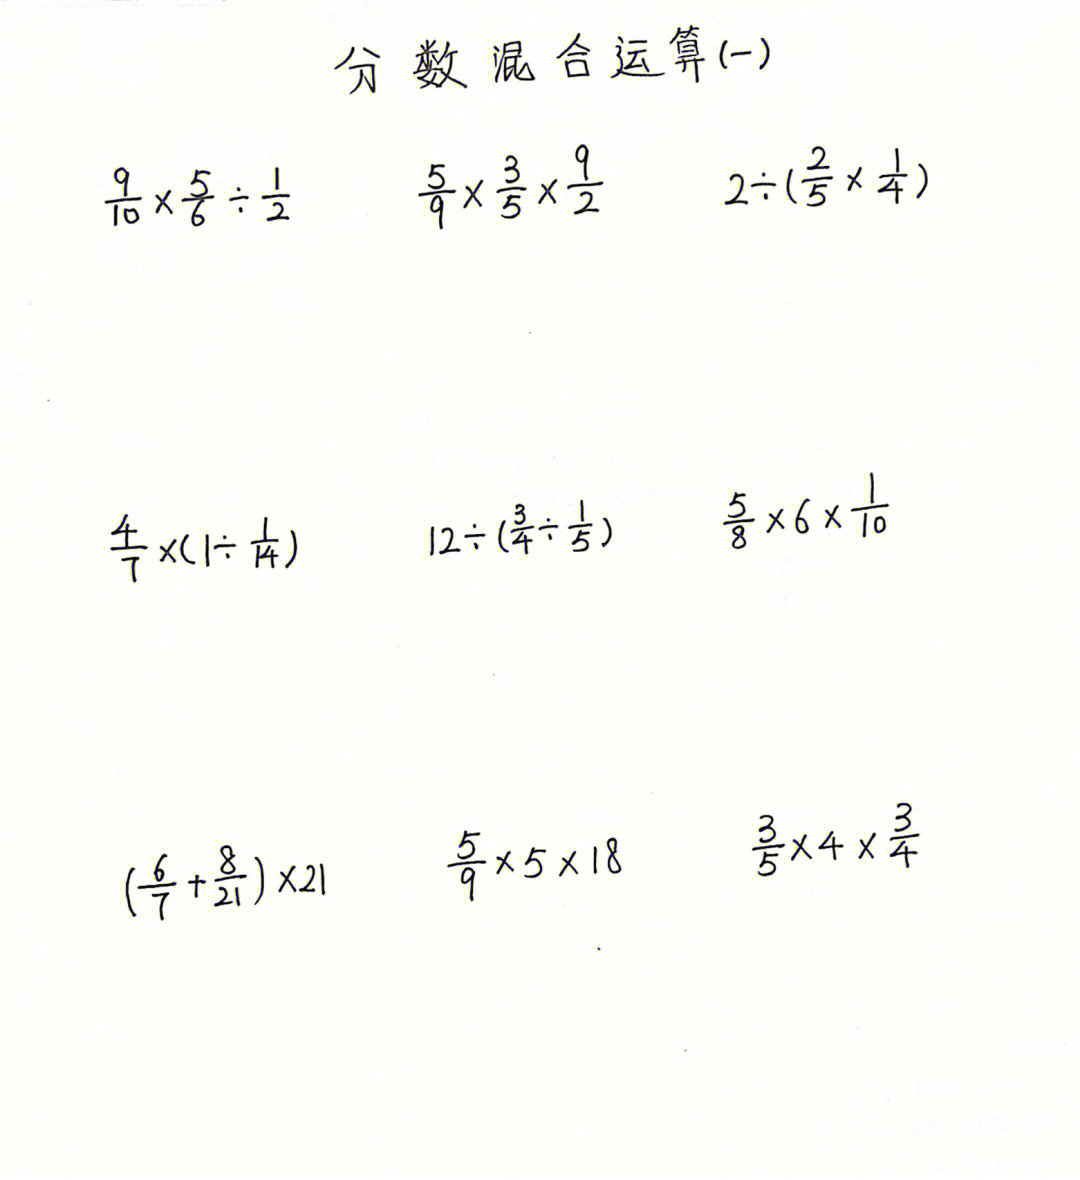 分数混合运算(一)
9/10 × 5/6 ÷ 1/2    5/9 × 3/5 × 9/2    2÷(2/5 × 1/4)
4/7 ×(1÷ 1/14)    12÷(3/4 ÷ 1/5)    5/8 ×6× 1/10
(6/7 + 8/21)×21    5/9 ×5×18    3/5 ×4× 3/4